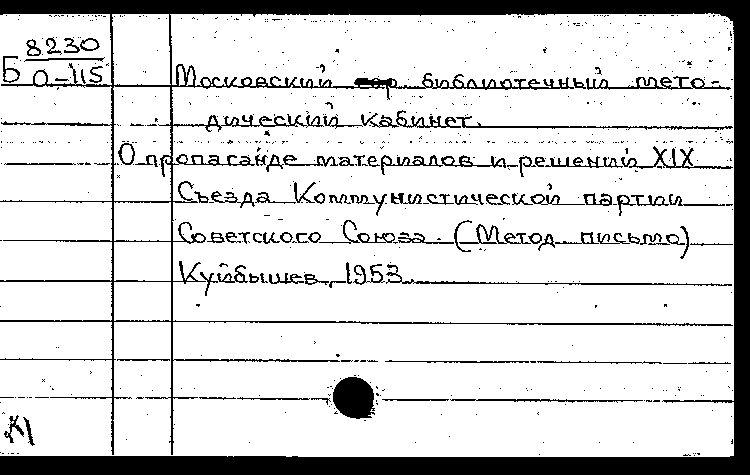 8230
Б О-115
Московский библиотечный мето-
дический кабинет.
О пропаганде материалов и решений XIX
Съезда Коммунистической партии
Советского Союза. (Метод. письмо)
Куйбышев, 1953.